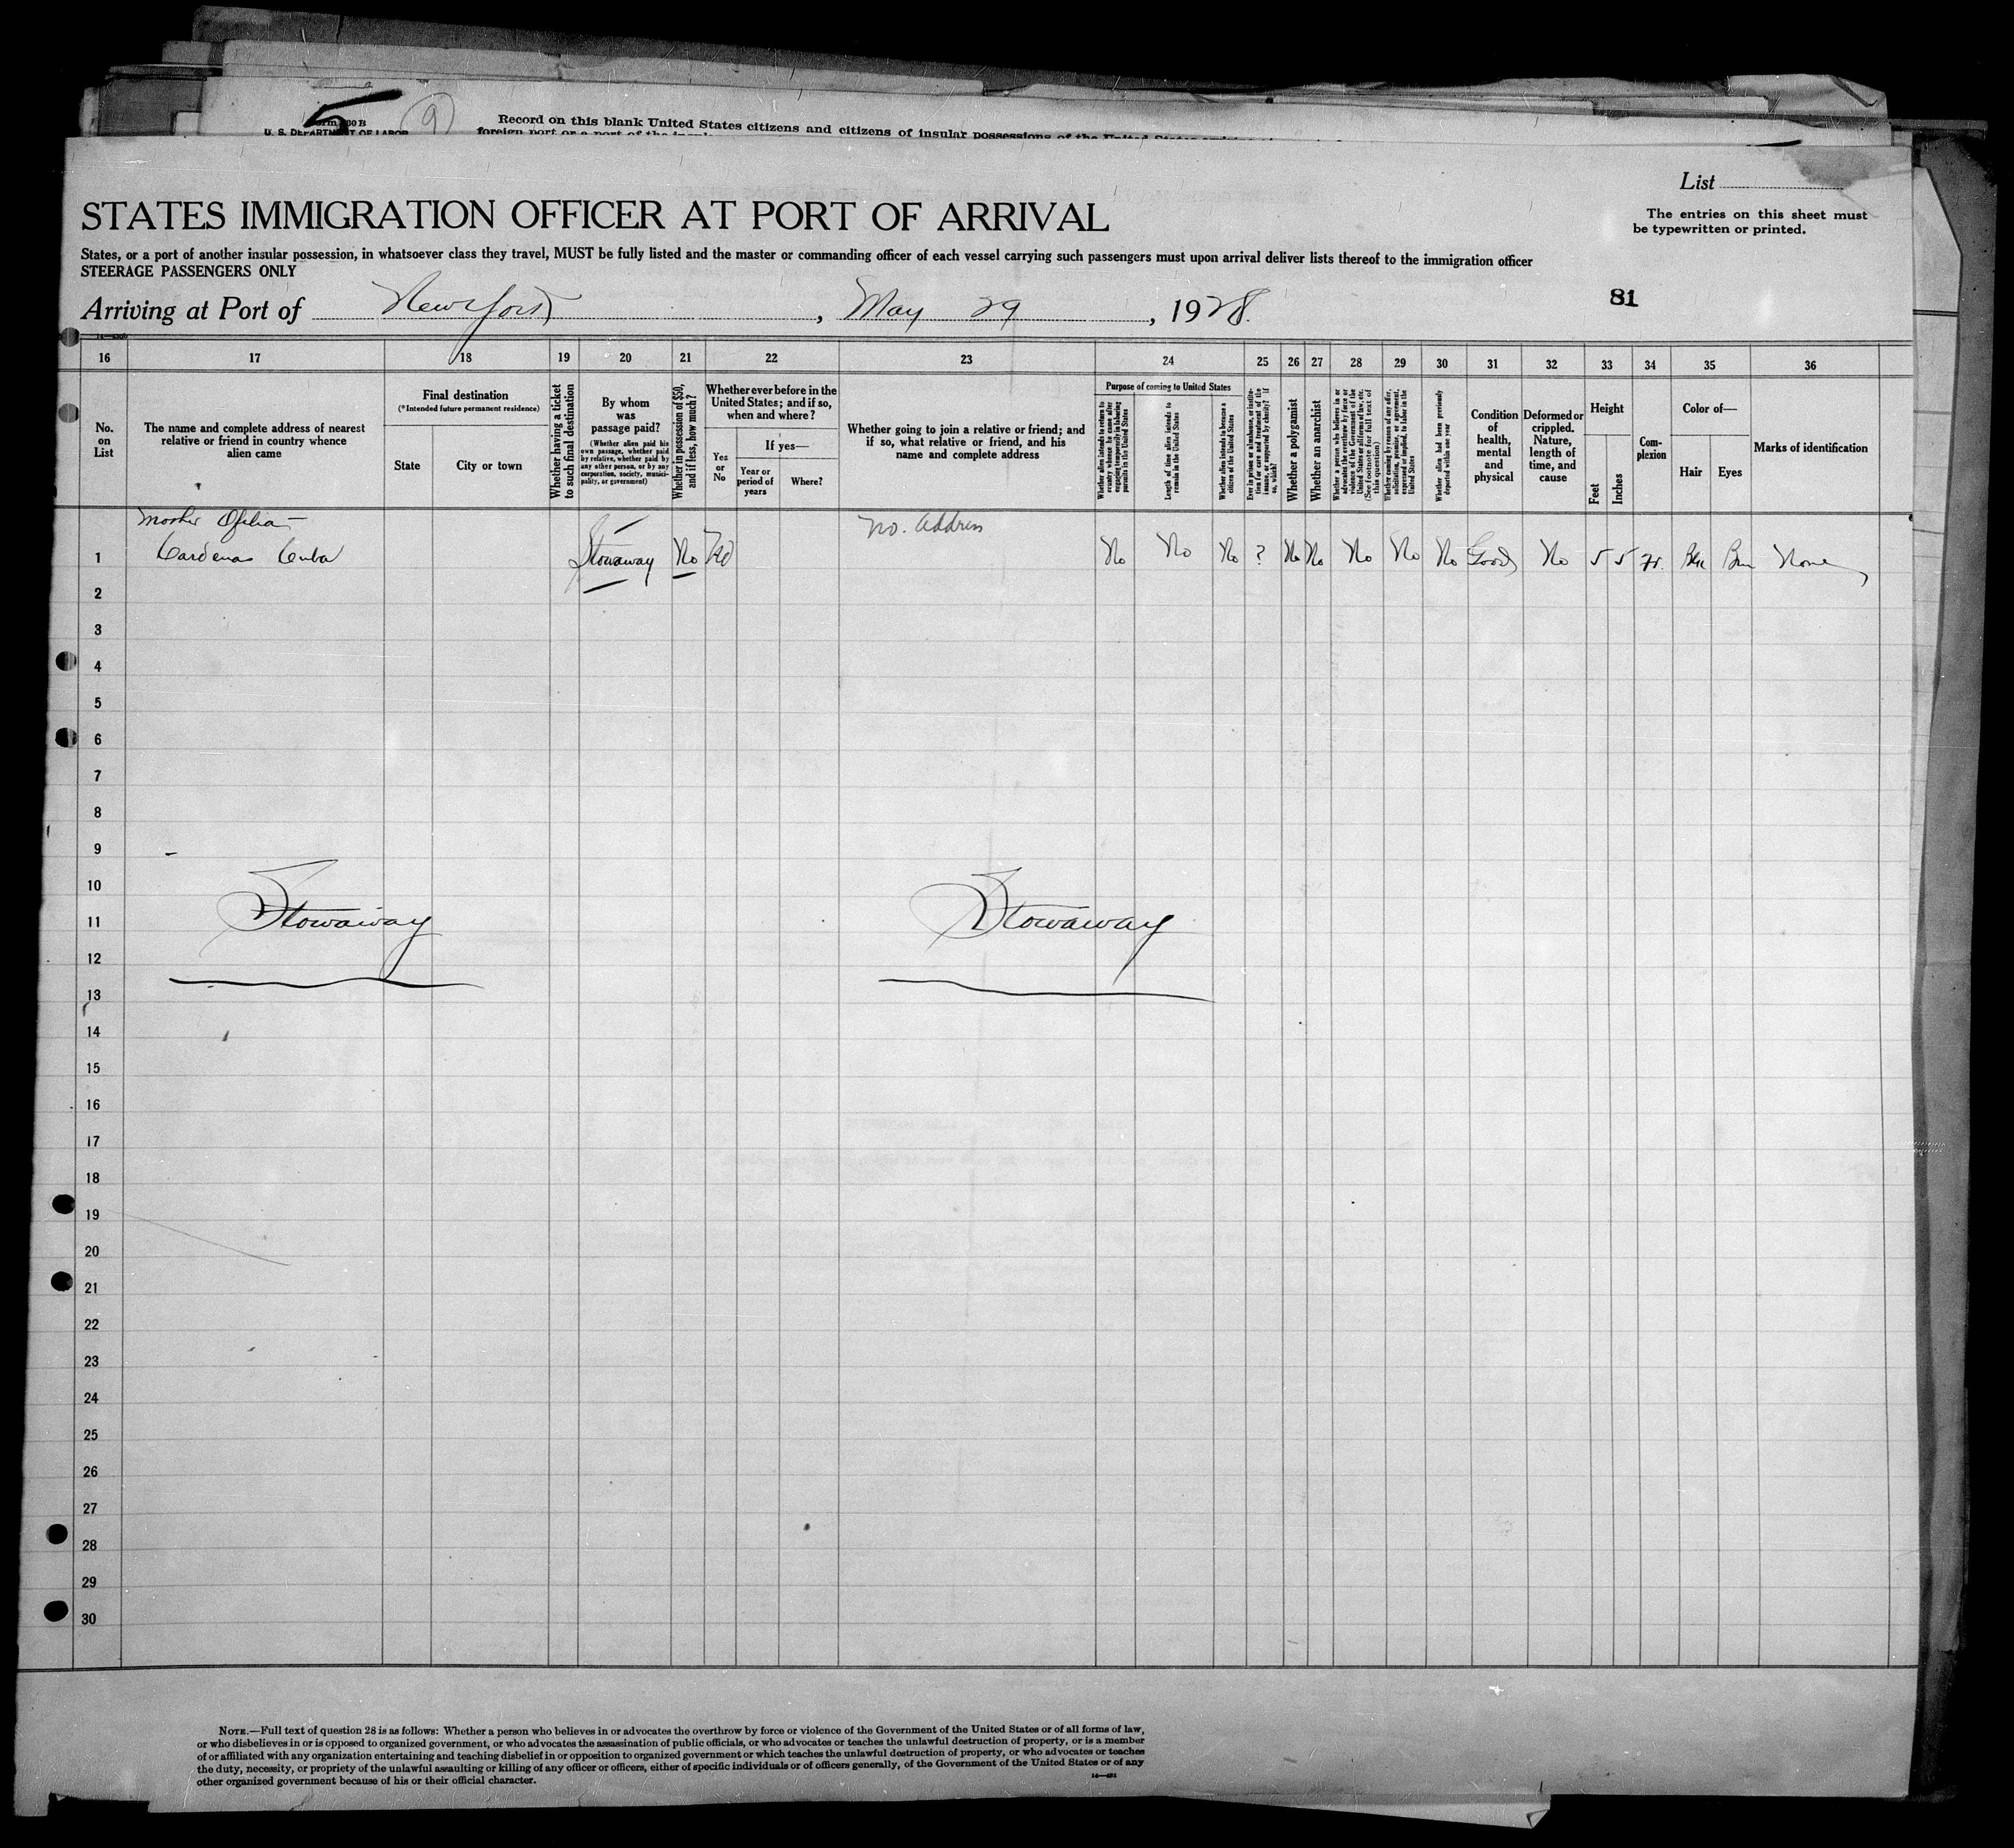 5 9
Form 630 B
U. S. DEPARTMENT OF LABOR
Record on this blank United States citizens and citizens of insular possessions of the United States
foreign port or a port of the
List
STATES IMMIGRATION OFFICER AT PORT OF ARRIVAL
The entries on this sheet must
be typewritten or printed.
States, or a port of another insular possession, in whatsoever class they travel, MUST be fully listed and the master or commanding officer of each vessel carrying such passengers must upon arrival deliver lists thereof to the immigration officer
STEERAGE PASSENGERS ONLY
Arriving at Port of New York, May 29, 1928.
81
16 17 18 19 20 21 22 23 24 25 26 27 28 29 30 31 32 33 34 35 36
No. on List
The name and complete address of nearest
relative or friend in country whence
alien came
Final destination
(*Intended future permanent residence)
State
City or town
Whether having a ticket
to such final destination
By whom
was
passage paid?
(Whether alien paid his
own passage, whether paid
by relative, whether paid by
any other person, or by any
corporation, society, munici-
pality, or government)
Whether in possession of $50,
and if less, how much?
Whether ever before in the
United States; and if so,
when and where?
Yes
or
No
If yes—
Year or
period of
years
Where?
Whether going to join a relative or friend; and
if so, what relative or friend, and his
name and complete address
Purpose of coming to United States
Whether alien intends to return to
country whence he came after
engaging temporarily in laboring
pursuits in the United States
Length of time alien intends to
remain in the United States
Whether alien intends to become a
citizen of the United States
Ever in prison or almshouse, or institu-
tion for care and treatment of the
insane, or supported by charity? If
so, which?
Whether a polygamist
Whether an anarchist
Whether a person who believes in or
advocates the overthrow by force or
violence of the Government of the
United States or all forms of law, etc.
(See footnote for full text of
this question)
Whether coming by reason of any offer,
solicitation, promise, or agreement,
expressed or implied, to labor in the
United States
Whether alien had been previously
deported within one year
Condition
of
health,
mental
and
physical
Deformed or
crippled.
Nature,
length of
time, and
cause
Height
Feet
Inches
Com-
plexion
Color of—
Hair
Eyes
Marks of identification
Mother Ofelia
No. address
1 Cardenas Cuba Stowaway No No No No No ? No No No No No Good No 5 5 fr. Blk Brn None
2
3
4
5
6
7
8
9
10
11 Stowaway Stowaway
12
13
14
15
16
17
18
19
20
21
22
23
24
25
26
27
28
29
30
NOTE.—Full text of question 28 is as follows: Whether a person who believes in or advocates the overthrow by force or violence of the Government of the United States or of all forms of law,
or who disbelieves in or is opposed to organized government, or who advocates the assassination of public officials, or who advocates or teaches the unlawful destruction of property, or is a member
of or affiliated with any organization entertaining and teaching disbelief in or opposition to organized government or which teaches the unlawful destruction of property, or who advocates or teaches
the duty, necessity, or propriety of the unlawful assaulting or killing of any officer or officers, either of specific individuals or of officers generally, of the Government of the United States or of any
other organized government because of his or their official character.